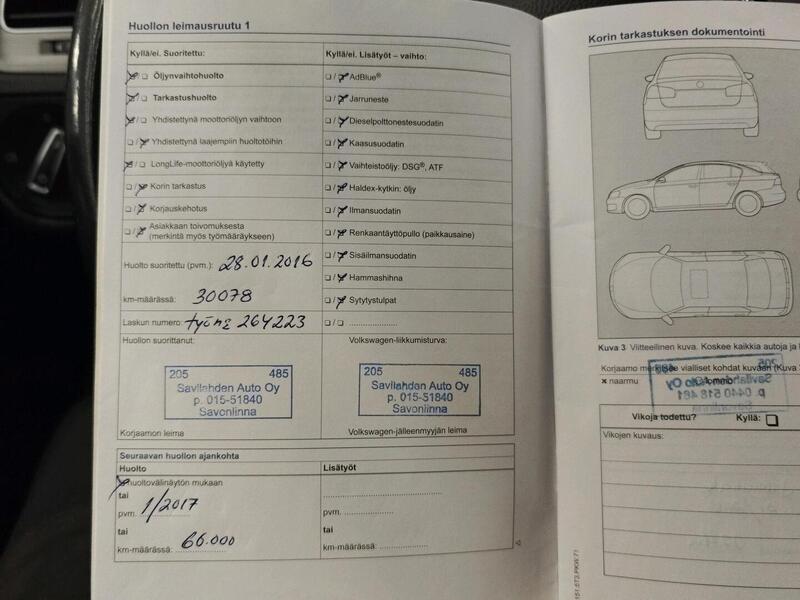 Huollon leimausruutu 1
Kyllä/ei. Suoritettu:
☒/☐ Öljynvaihtohuolto
☒/☐ Tarkastushuolto
☒/☐ Yhdistettynä moottoriöljyn vaihtoon
☐/☒ Yhdistettynä laajempiin huoltotöihin
☒/☐ LongLife-moottoriöljyä käytetty
☐/☒ Korin tarkastus
☐/☒ Korjauskehotus
☐/☒ Asiakkaan toivomuksesta
(merkintä myös työmääräykseen)
Huolto suoritettu (pvm.): 28.01.2016
km-määrässä: 30078
Laskun numero: työnr 264223
Kyllä/ei. Lisätyöt – vaihto:
☐/☒ AdBlue®
☐/☒ Jarruneste
☐/☒ Dieselpolttonestesuodatin
☐/☒ Kaasusuodatin
☐/☒ Vaihteistoöljy: DSG®, ATF
☐/☒ Haldex-kytkin: öljy
☐/☒ Ilmansuodatin
☐/☒ Renkaantäyttöpullo (paikkausaine)
☐/☒ Sisäilmansuodatin
☐/☒ Hammashihna
☐/☒ Sytytystulpat
☐/☐ ....................
Huollon suorittanut:
205 485
Savilahden Auto Oy
p. 015-51840
Savonlinna
Korjaamon leima
Volkswagen-liikkumisturva:
205 485
Savilahden Auto Oy
p. 015-51840
Savonlinna
Volkswagen-jälleenmyyjän leima
Seuraavan huollon ajankohta
Huolto
☒ huoltovälinäytön mukaan
tai
pvm. 1/2017
tai
km-määrässä: 66.000
Lisätyöt
pvm. ....................
tai
km-määrässä: ....................
Korin tarkastuksen dokumentointi
Kuva 3 Viitteellinen kuva. Koskee kaikkia autoja ja
Korjaamo merkitsee vialliset kohdat kuvaan (Kuva
× naarmu
Vikoja todettu? Kyllä: ☐
Vikojen kuvaus: